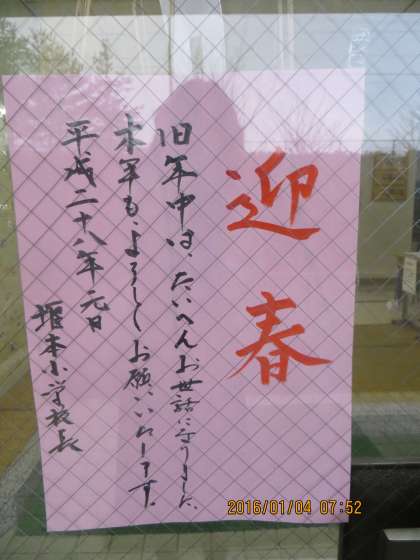 迎春
旧年中は、たいへんお世話になりました。
本年も、よろしくお願いいたします。
平成二十八年元日
堀本小学校長
2016/01/04 07:52